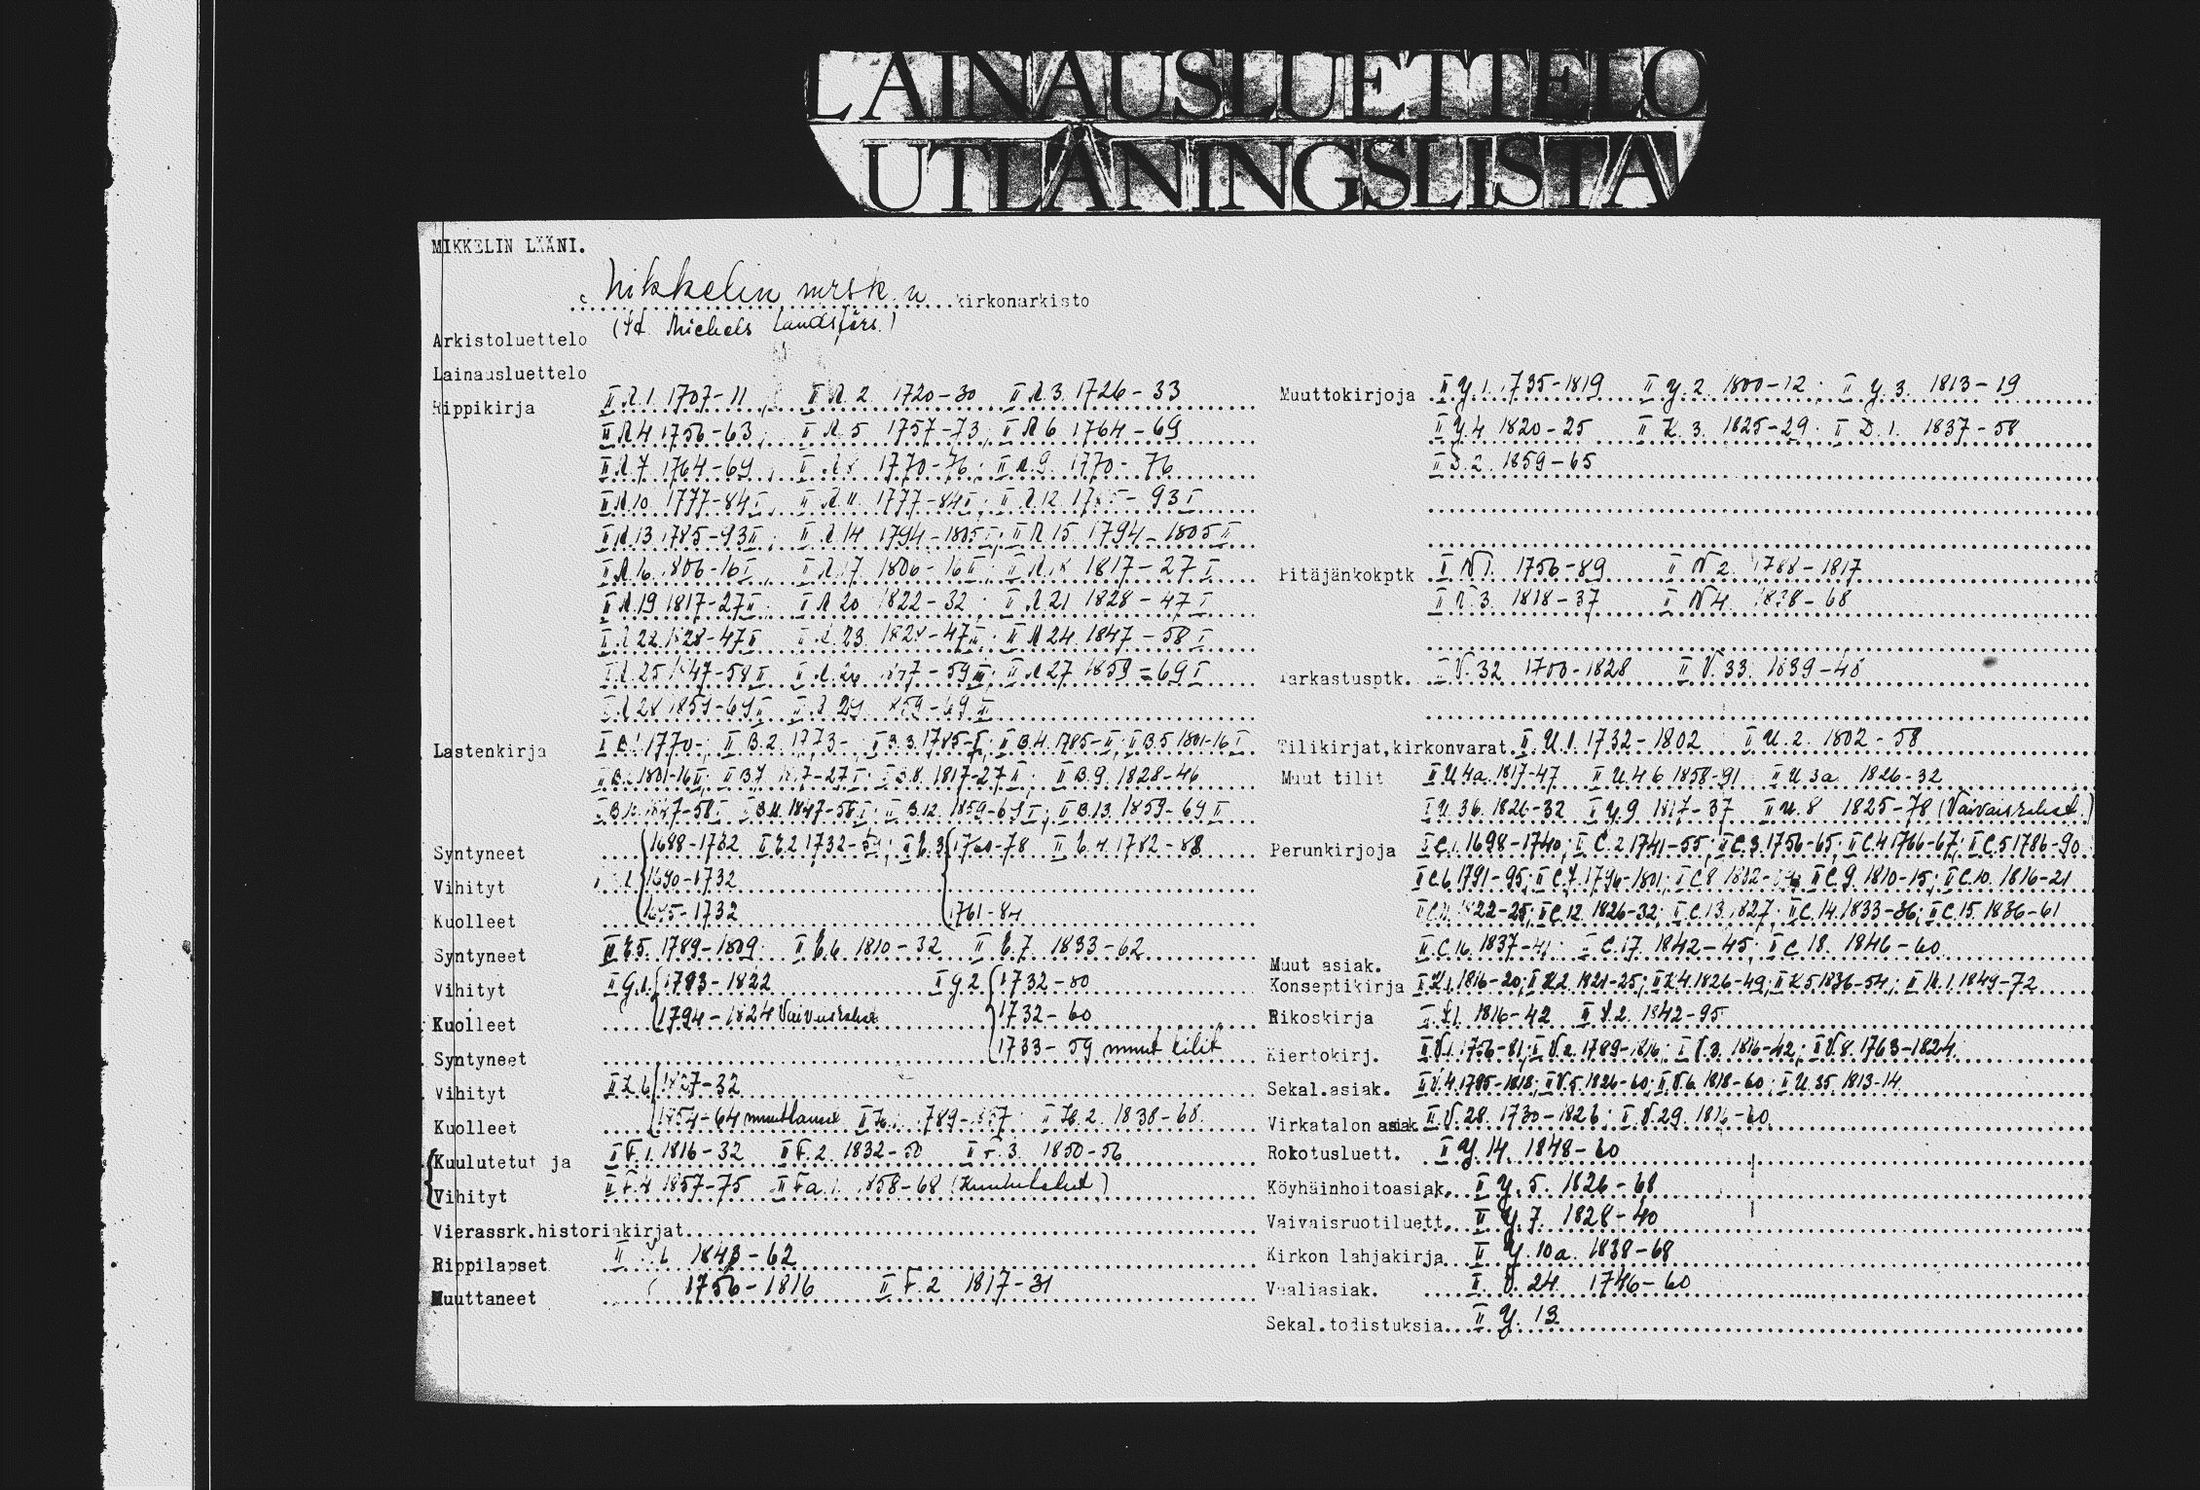 LAINAUSLUETTELO
UTLÅNINGSLISTA
MIKKELIN LÄÄNI.
Mikkelin mrsk.n kirkonarkisto
(St Michels Landsförs.)
Arkistoluettelo
Lainausluettelo
Rippikirja II A.1. 1707-11 II A.2. 1720-30 II A.3. 1726-33
II A.4 1756-63; II A.5 1757-73; II A.6 1764-69
II A.7. 1764-69; II A.8 1770-76; II A.9. 1770-76
II A.10 1777-84 I; II A.11. 1777-84 II; II A.12 93 I
II A.13 1785-93 II; II A.14 1794-1805 I; II A.15. 1794-1805 II
II A.16. 1806-16 I; II A.17 1806-16 II; II A.18 1817-27 I
II A.19 1817-27 II; II A.20 1822-32; II A.21 1828-47 I
II A.22 1828-47 II II A.23. 1828-47 II; II A.24. 1847-58 I
II A.25 1847-58 II II A.26 1847-59 III; II A.27 1859-69 I
II A.28 1859-69 II II A.29 1859-69 III
Lastenkirja II B.1 1770-; II B.2. 1773-; II B.3. 1785-I; II B.4. 1785-II; II B.5 1801-16 I
II B.6 1801-16 II; II B.7. 1817-27 I; II B.8. 1817-27 II; II B.9. 1828-46
II B.10 1847-58 I; II B.11. 1847-58 II; II B.12. 1859-69 I; II B.13. 1859-69 II
Syntyneet 1688-1732 II E.2 1732-59; II E.3 1760-78 II E.4. 1782-88
Vihityt 1690-1732
Kuolleet 1695-1732 1761-84
Syntyneet II E.5. 1789-1809 II E.6 1810-32 II E.7. 1833-62
Vihityt II G.1. 1793-1822 II G.2. 1732-80
Kuolleet 1794-1824 Vaivaisrahat 1732-60
Syntyneet 1733-59 muut tilit
Vihityt II L.6 1827-32
Kuolleet 1854-64 muuttaneet II H.1. 1789-1837 II H.2. 1838-68
Kuulutetut ja II F.1. 1816-32 II F.2. 1832-50 II F.3. 1850-56
Vihityt II F.4 1857-75 II Fa.1. 1858-68 (Kuulutukset)
Vierassrk.historiakirjat
Rippilapset II 1843-62
Muuttaneet 1756-1816 II F.2 1817-31
Muuttokirjoja II Y.1. 1735-1819 II Y.2. 1800-12; II Y.3. 1813-19
II Y.4 1820-25 II K.3. 1825-29; II D.1. 1837-58
II D.2. 1859-65
Pitäjänkokptk II N1. 1756-89 II N2. 1788-1817
II N3. 1818-37 II N4. 1838-68
Tarkastusptk. II V.32 1700-1828 II V.33. 1839-48
Tilikirjat,kirkonvarat II U.1. 1732-1802 II U.2. 1802-58
Muut tilit II U.4a. 1817-47 II U.4b 1858-91 II U.3a 1826-32
II U.3b. 1826-32 II Y.9 1817-37 II U.8 1825-78 (Vaivaisrahat.)
Perunkirjoja II C.1. 1698-1740; II C.2 1741-55; II C.3. 1756-65; II C.4 1766-67; II C.5 1786-90
II C.6 1791-95; II C.7. 1796-1801; II C.8 1802- II C.9. 1810-15; II C.10. 1816-21
II C.11. 1822-25; II C.12. 1826-32; II C.13. 1827; II C.14. 1833-36; II C.15. 1836-61
II C.16. 1837-41; II C.17. 1842-45; II C.18. 1846-60
Muut asiak.
Konseptikirja II K.1. 1816-20; II K.2. 1821-25; II K.4. 1826-49; II K.5 1836-54; II M.1. 1849-72
Rikoskirja 1816-42 1842-95
Kiertokirj. II V.1. 1756-81; II V.2. 1789-1816; II V.3. 1816-42; II V.8. 1763-1824
Sekal.asiak. II V.4. 1795-1818; II V.5. 1826-60; II V.6. 1818-60; II U.35 1813-14
Virkatalon asiak II V.28. 1730-1826; II V.29. 1816-60
Rokotusluett. II Y.14. 1848-60
Köyhäinhoitoasiak. II Y.5. 1826-68
Vaivaisruotiluett. II Y.7. 1828-40
Kirkon lahjakirja II Y.10a. 1838-68
Vaaliasiak. II V.24. 1746-60
Sekal.todistuksia II Y.13